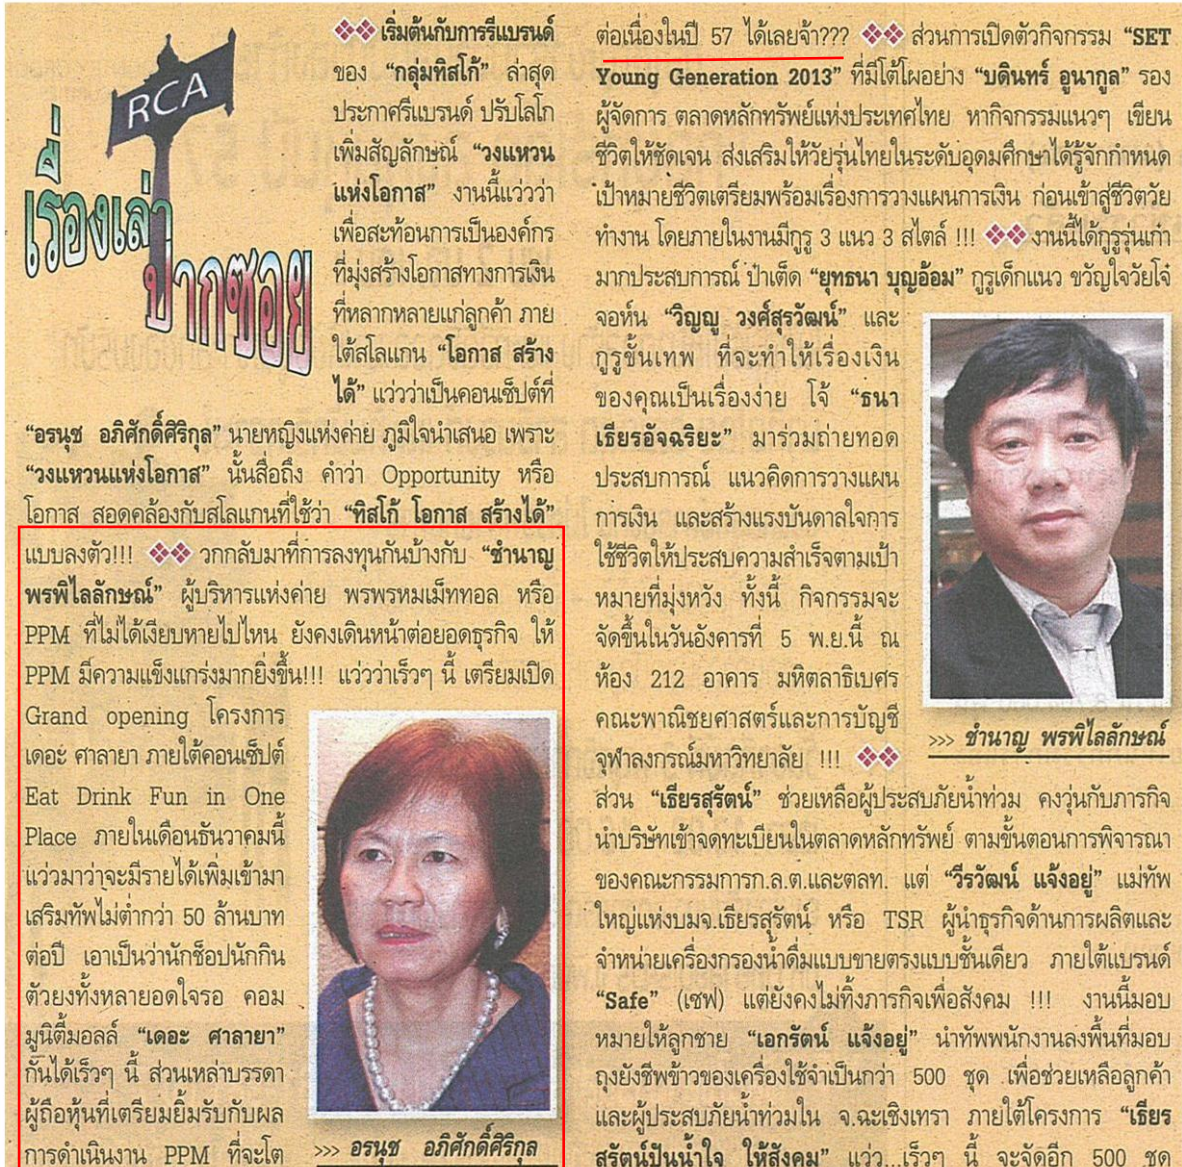 RCA
เรื่องเล่า
ปากซอย
❖❖ เริ่มต้นกับการรีแบรนด์
ของ “กลุ่มทิสโก้” ล่าสุด
ประกาศรีแบรนด์ ปรับโลโก
เพิ่มสัญลักษณ์ “วงแหวน
แห่งโอกาส” งานนี้แว่วว่า
เพื่อสะท้อนการเป็นองค์กร
ที่มุ่งสร้างโอกาสทางการเงิน
ที่หลากหลายแก่ลูกค้า ภาย
ใต้สโลแกน “โอกาส สร้าง
ได้” แว่วว่าเป็นคอนเซ็ปต์ที่
“อรนุช อภิศักดิ์ศิริกุล” นายหญิงแห่งค่าย ภูมิใจนำเสนอ เพราะ
“วงแหวนแห่งโอกาส” นั้นสื่อถึง คำว่า Opportunity หรือ
โอกาส สอดคล้องกับสโลแกนที่ใช้ว่า “ทิสโก้ โอกาส สร้างได้”
แบบลงตัว!!! ❖❖ วกกลับมาที่การลงทุนกันบ้างกับ “ชำนาญ
พรพิไลลักษณ์” ผู้บริหารแห่งค่าย พรพรหมเม็ททอล หรือ
PPM ที่ไม่ได้เงียบหายไปไหน ยังคงเดินหน้าต่อยอดธุรกิจ ให้
PPM มีความแข็งแกร่งมากยิ่งขึ้น!!! แว่วว่าเร็วๆ นี้ เตรียมเปิด
Grand opening โครงการ
เดอะ ศาลายา ภายใต้คอนเซ็ปต์
Eat Drink Fun in One
Place ภายในเดือนธันวาคมนี้
แว่วมาว่าจะมีรายได้เพิ่มเข้ามา
เสริมทัพไม่ต่ำกว่า 50 ล้านบาท
ต่อปี เอาเป็นว่านักช็อปนักกิน
ตัวยงทั้งหลายอดใจรอ คอม
มูนิตี้มอลล์ “เดอะ ศาลายา”
กันได้เร็วๆ นี้ ส่วนเหล่าบรรดา
ผู้ถือหุ้นที่เตรียมยิ้มรับกับผล
การดำเนินงาน PPM ที่จะโต
>>> อรนุช อภิศักดิ์ศิริกุล
ต่อเนื่องในปี 57 ได้เลยจ้า??? ❖❖ ส่วนการเปิดตัวกิจกรรม “SET
Young Generation 2013” ที่มีโต้โผอย่าง “บดินทร์ อูนากูล” รอง
ผู้จัดการ ตลาดหลักทรัพย์แห่งประเทศไทย หากิจกรรมแนวๆ เขียน
ชีวิตให้ชัดเจน ส่งเสริมให้วัยรุ่นไทยในระดับอุดมศึกษาได้รู้จักกำหนด
เป้าหมายชีวิตเตรียมพร้อมเรื่องการวางแผนการเงิน ก่อนเข้าสู่ชีวิตวัย
ทำงาน โดยภายในงานมีกูรู 3 แนว 3 สไตล์ !!! ❖❖ งานนี้ได้กูรูรุ่นเก๋า
มากประสบการณ์ ป๋าเต็ด “ยุทธนา บุญอ้อม” กูรูเด็กแนว ขวัญใจวัยโจ๋
จอห์น “วิญญู วงศ์สุรวัฒน์” และ
กูรูชั้นเทพ ที่จะทำให้เรื่องเงิน
ของคุณเป็นเรื่องง่าย โจ้ “ธนา
เธียรอัจฉริยะ” มาร่วมถ่ายทอด
ประสบการณ์ แนวคิดการวางแผน
การเงิน และสร้างแรงบันดาลใจการ
ใช้ชีวิตให้ประสบความสำเร็จตามเป้า
หมายที่มุ่งหวัง ทั้งนี้ กิจกรรมจะ
จัดขึ้นในวันอังคารที่ 5 พ.ย.นี้ ณ
ห้อง 212 อาคาร มหิตลาธิเบศร
คณะพาณิชยศาสตร์และการบัญชี
จุฬาลงกรณ์มหาวิทยาลัย !!! ❖❖
>>> ชำนาญ พรพิไลลักษณ์
ส่วน “เธียรสุรัตน์” ช่วยเหลือผู้ประสบภัยน้ำท่วม คงวุ่นกับภารกิจ
นำบริษัทเข้าจดทะเบียนในตลาดหลักทรัพย์ ตามขั้นตอนการพิจารณา
ของคณะกรรมการก.ล.ต.และตลท. แต่ “วีรวัฒน์ แจ้งอยู่” แม่ทัพ
ใหญ่แห่งบมจ.เธียรสุรัตน์ หรือ TSR ผู้นำธุรกิจด้านการผลิตและ
จำหน่ายเครื่องกรองน้ำดื่มแบบขายตรงแบบชั้นเดียว ภายใต้แบรนด์
“Safe” (เซฟ) แต่ยังคงไม่ทิ้งภารกิจเพื่อสังคม !!! งานนี้มอบ
หมายให้ลูกชาย “เอกรัตน์ แจ้งอยู่” นำทัพพนักงานลงพื้นที่มอบ
ถุงยังชีพข้าวของเครื่องใช้จำเป็นกว่า 500 ชุด เพื่อช่วยเหลือลูกค้า
และผู้ประสบภัยน้ำท่วมใน จ.ฉะเชิงเทรา ภายใต้โครงการ “เธียร
สุรัตน์ปันน้ำใจ ให้สังคม” แว่ว...เร็วๆ นี้ จะจัดอีก 500 ชุด